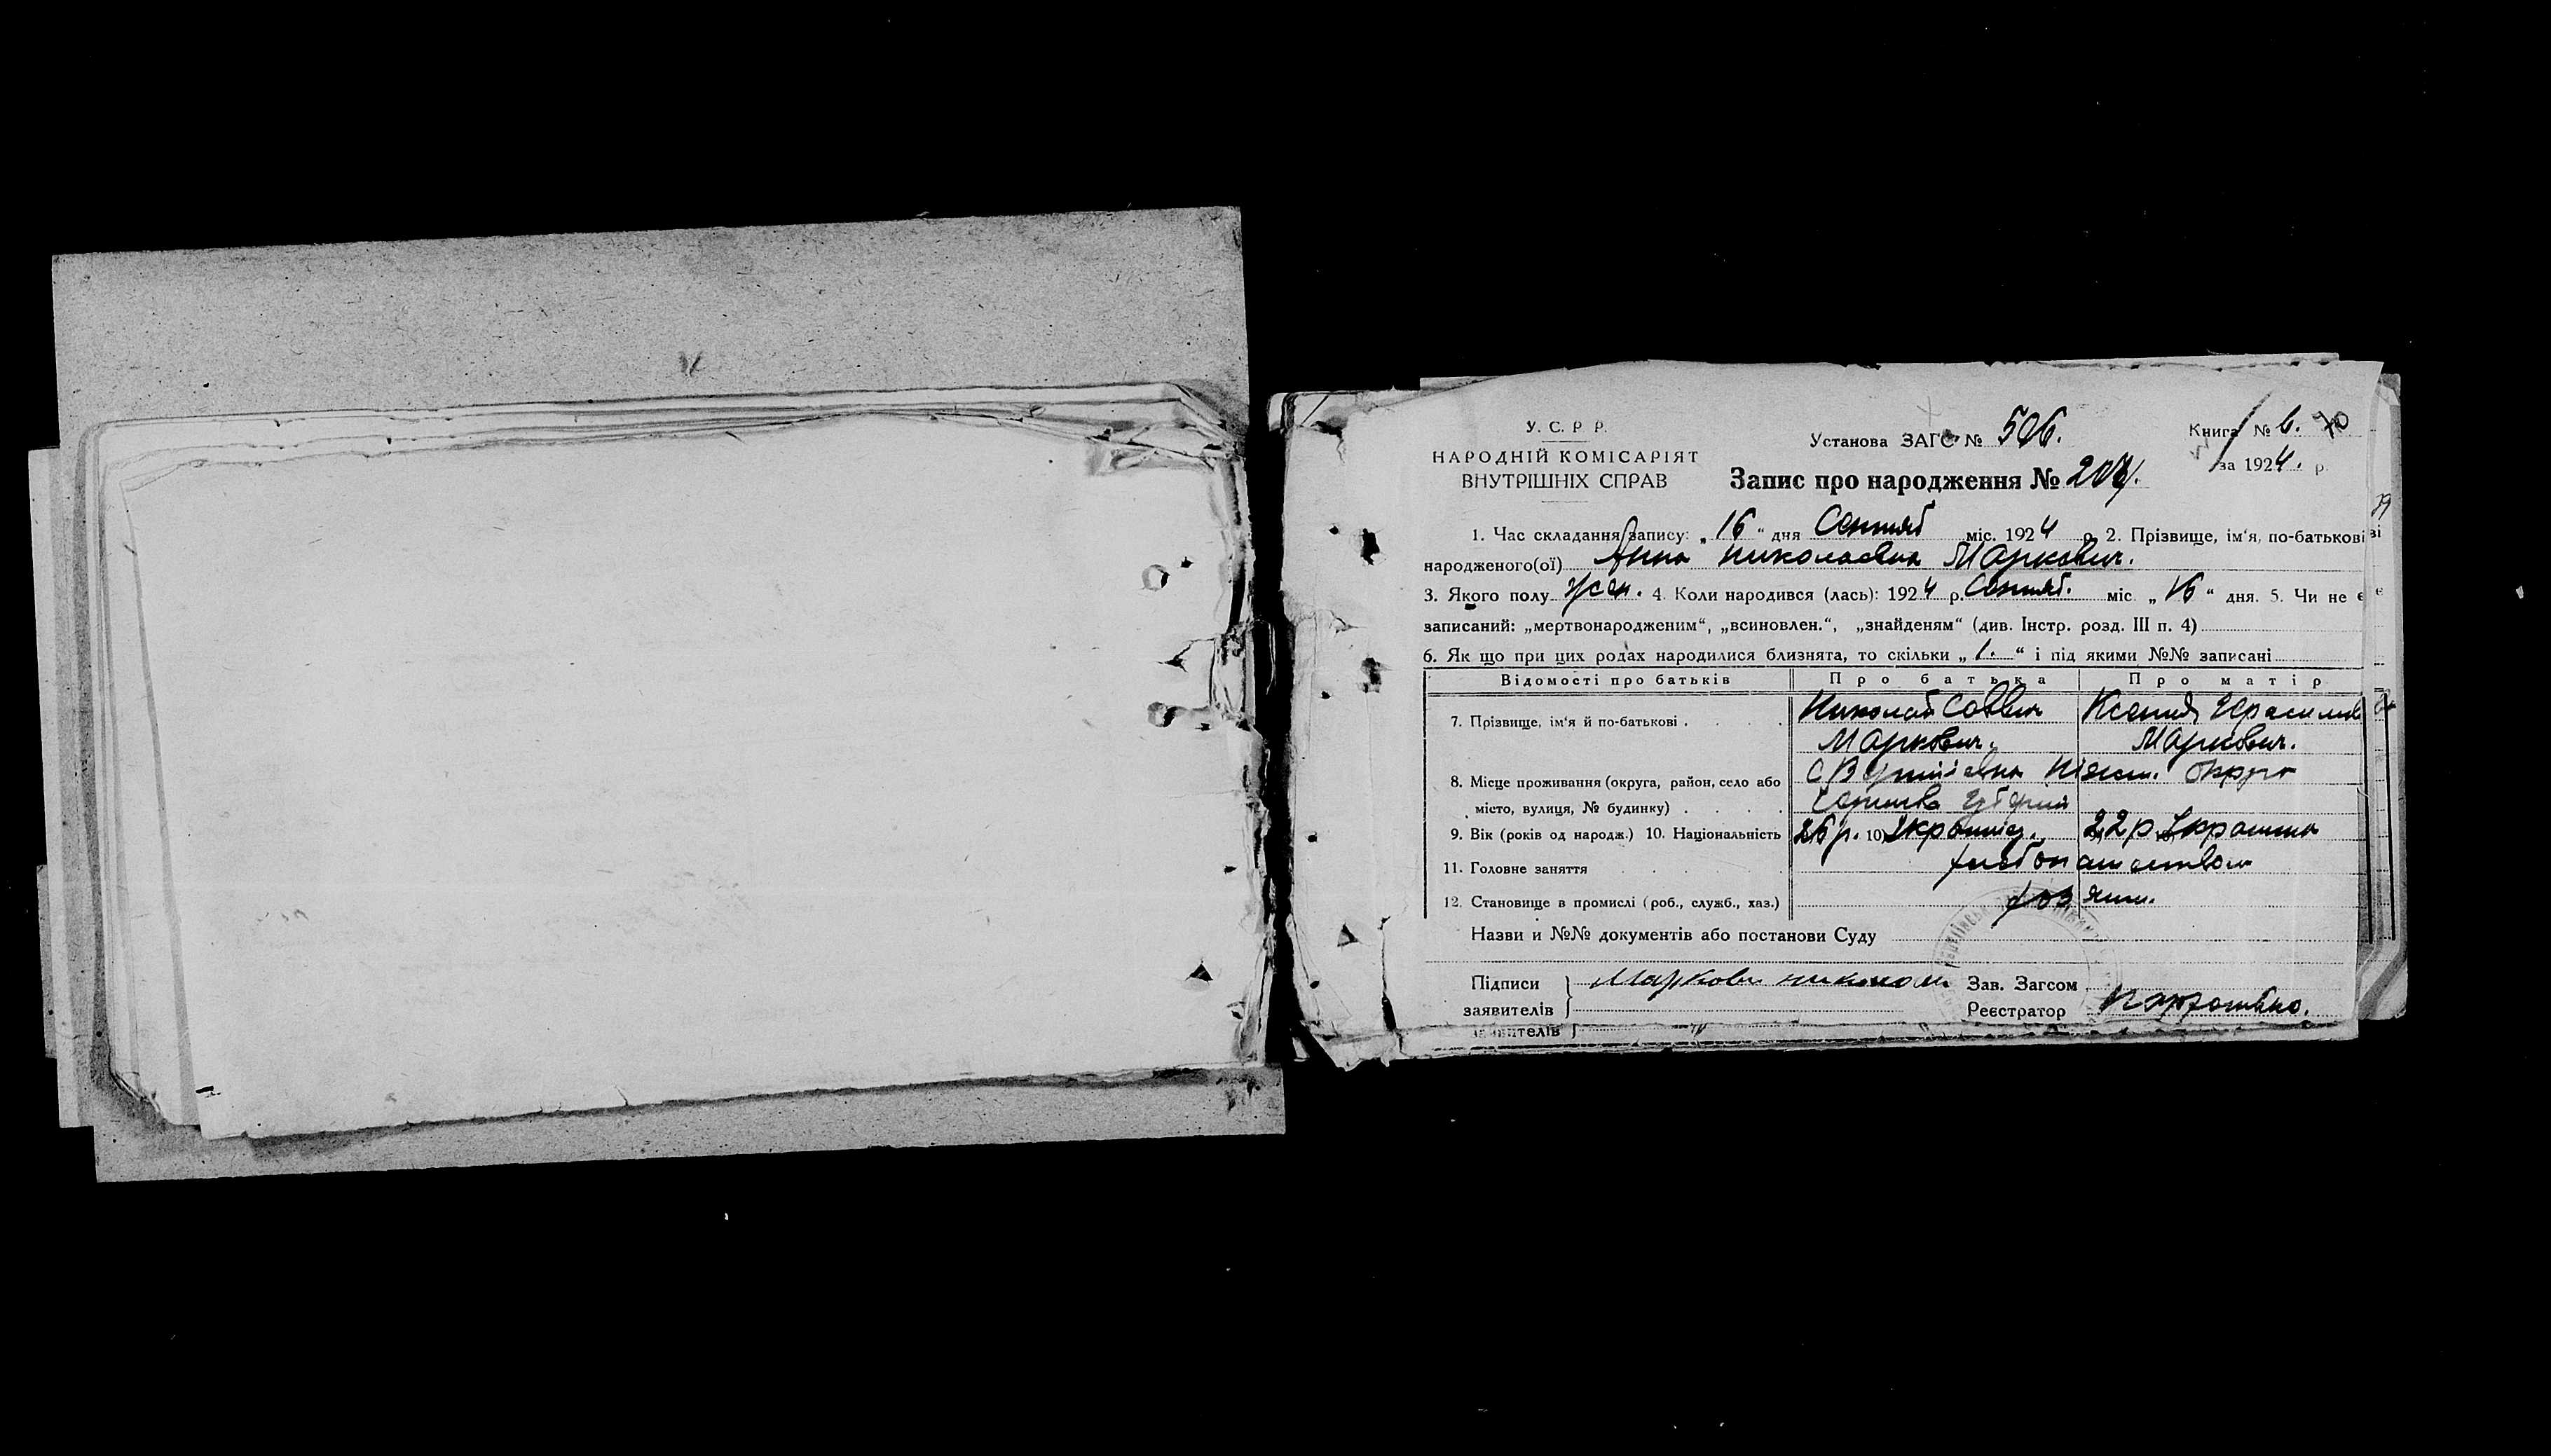 У. С. Р Р.
НАРОДНІЙ КОМІСАРІЯТ
ВНУТРІШНІХ СПРАВ
Установа ЗАГС № 506.
Запис про народження №
Книга № 6. 70
за 1924. р.
1. Час складання запису: „16“ дня Сентяб міс. 1924 р. 2. Прізвище, ім‘я, по-батькові
народженого(ої) Анна Николаевна Маркович.
3. Якого полу жен. 4. Коли народився (лась): 1924 р. Сентяб. міс. „16“ дня. 5. Чи не є
записаний: „мертвонародженим“, „всиновлен.“, „знайденям“ (див. Інстр. розд. III п. 4)
6. Як що при цих родах народилися близнята, то скільки „1.“ і під якими №№ записані
Відомості про батьків Про батька Про матір
7. Прізвище, ім‘я й по-батькові . Николай Саввич Ксения Герасимов
Маркович. Маркович.
8. Місце проживання (округа, район, село або округа
місто, вулиця, № будинку) . . . .
9. Вік (років од народж.) 10. Національність 26 р. 10. Украинец. 22 р. Украинка
11. Головне заняття хлебопашеством
12. Становище в промислі (роб., служб., хаз.) хозяин.
Назви и №№ документів або постанови Суду
Підписи Маркович Николай Зав. Загсом
заявителів Реєстратор
заявителів